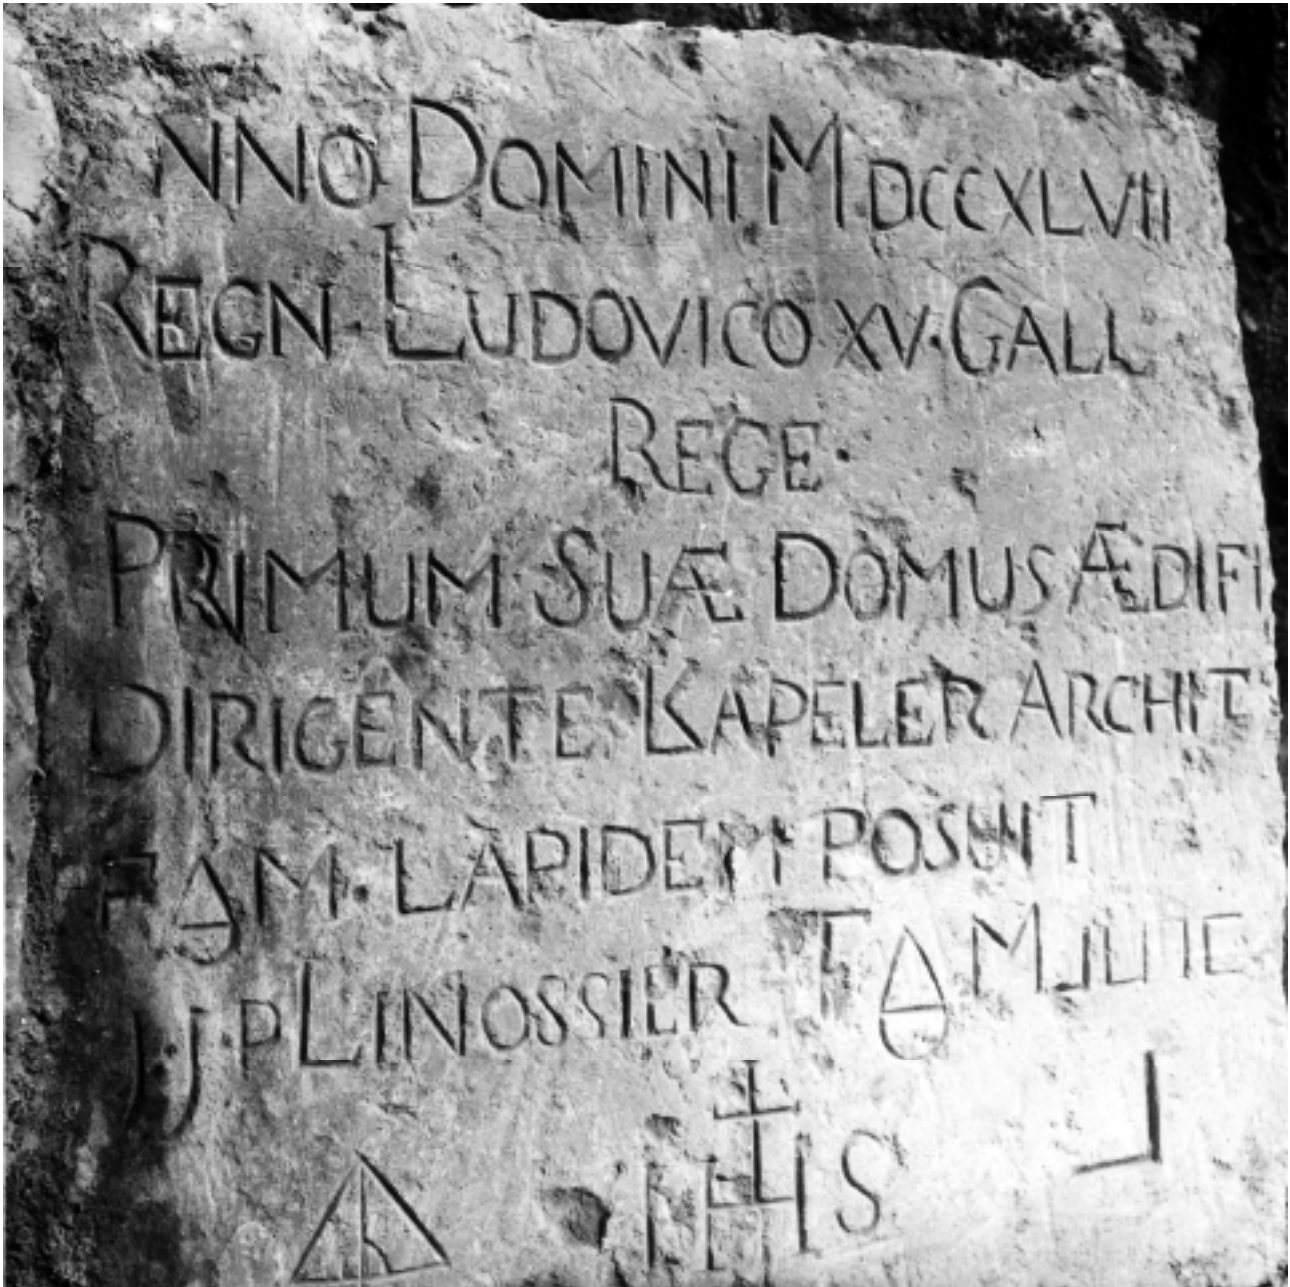 NNO DOMINI MDCCXLVII
REGN· LUDOVICO XV· GALL
REGE·
PRIMUM SUÆ DOMUS ÆDIFI
DIRIGENTE KAPELER ARCHIT
FAM· LAPIDEM POSUIT
J·J·P LINOSSIER
IHS